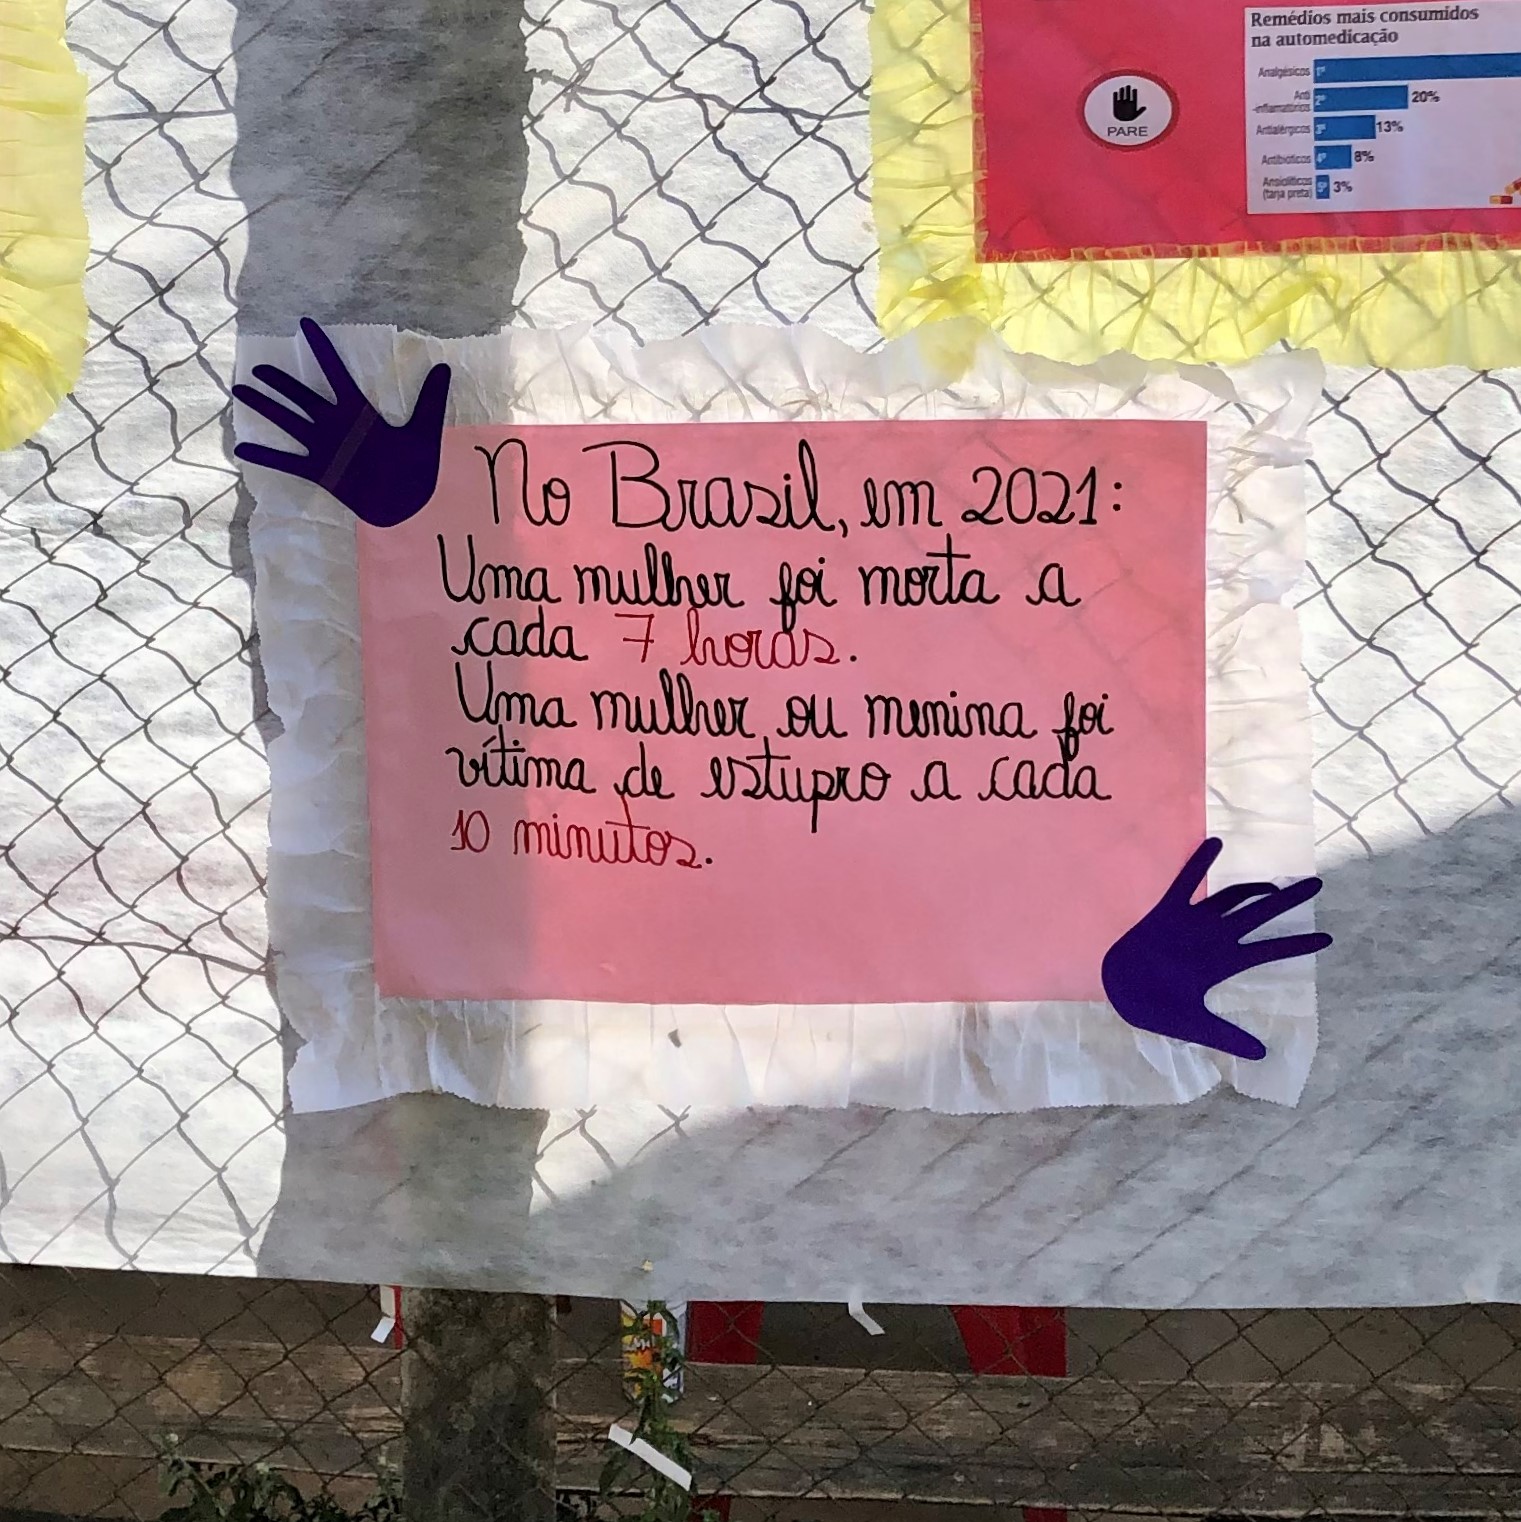 Remédios mais consumidos
na automedicação
Analgésicos 1º
Anti
-inflamatórios 2º 20%
Antialérgicos 3º 13%
Antibióticos 4º 8%
Ansiolíticos
(tarja preta) 5º 3%
PARE
No Brasil, em 2021:
Uma mulher foi morta a
cada 7 horas.
Uma mulher ou menina foi
vítima de estupro a cada
10 minutos.